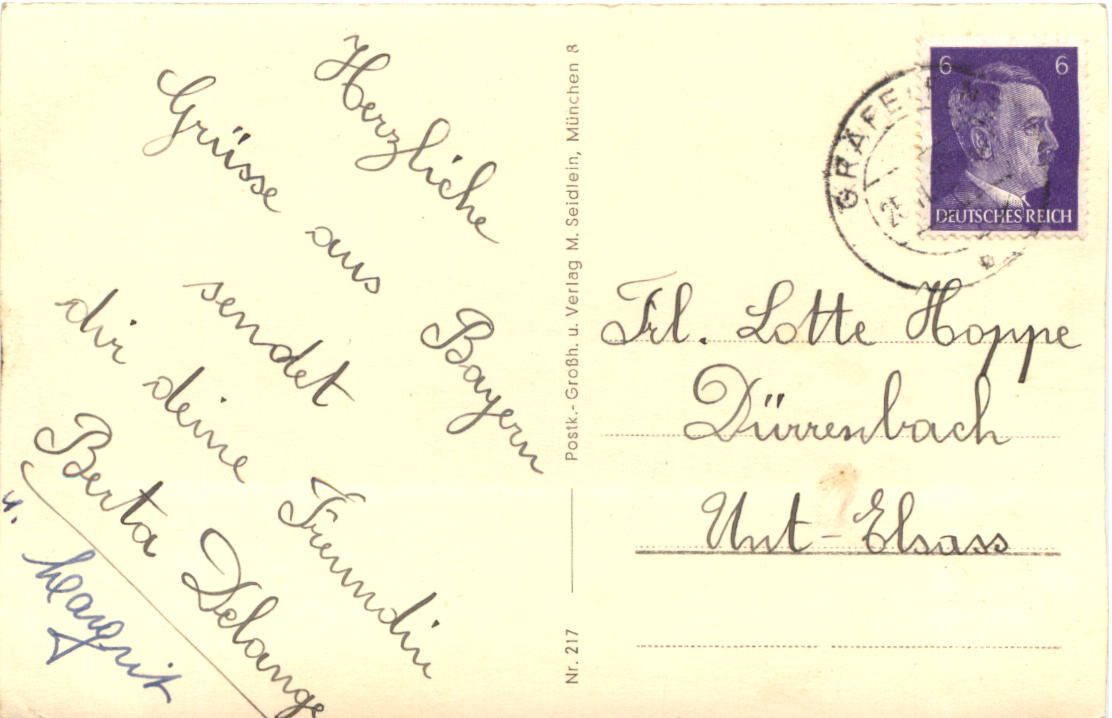 Herzliche
Grüsse aus Bayern
sendet
dir deine Freundin
Berta Delange
u. Margrit
Postk.- Großh. u. Verlag M. Seidlein, München 8
Nr. 217
6 6
DEUTSCHES REICH
25
Frl. Lotte Hoppe
Dürrenbach
Unt-Elsass